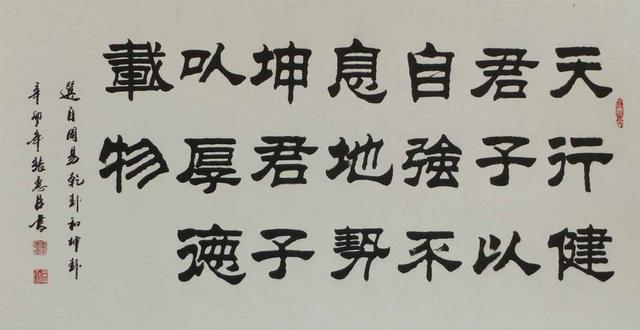 天行健
君子以
自強不
息地勢
坤君子
以厚德
載物
選自周易乾卦和坤卦
辛卯年張書